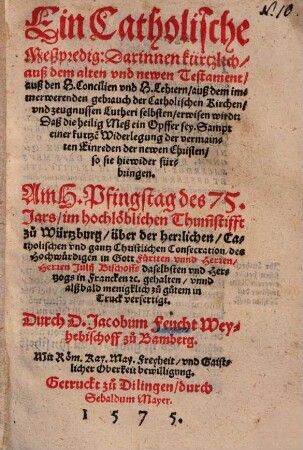 N. 10
Ein Catholische
Meßpredig: Darinnen kürtzlich/
auß dem alten vnd newen Testament/
auß den H. Concilien vnd H. Lehrern/ auß dem im̃-
merwerenden gebrauch der Catholischen Kirchen/
vnd zeugnussen Lutheri selbsten/ erwisen wirdt:
Daß die heilig Meß ein Opffer sey. Sampt
einer kurtzẽ Widerlegung der vermain-
ten Einreden der newen Christen/
so sie hiewider für-
bringen.
Am H. Pfingstag des 75.
Jars/ im hochlöblichen Thumstifft
zů Würtzburg/ über der herrlichen/ Ca-
tholischen vnd gantz Christlichen Consecration, des
Hochwürdigen in Gott Fürsten vnnd Herren/
Herren Julij Bischoffs daselbsten vnd Her-
tzogs in Francken ꝛc. gehalten/ vnnd
alßbald menigklich zů gůtem in
Truck verfertigt.
Durch D. Jacobum Feucht Wey-
hebischoff zů Bamberg.
Mit Röm. Kay. May. Freyheit/ vnd Gaistli-
cher Oberkeit bewilligung.
Getruckt zů Dilingen/ durch
Sebaldum Mayer.
1575.